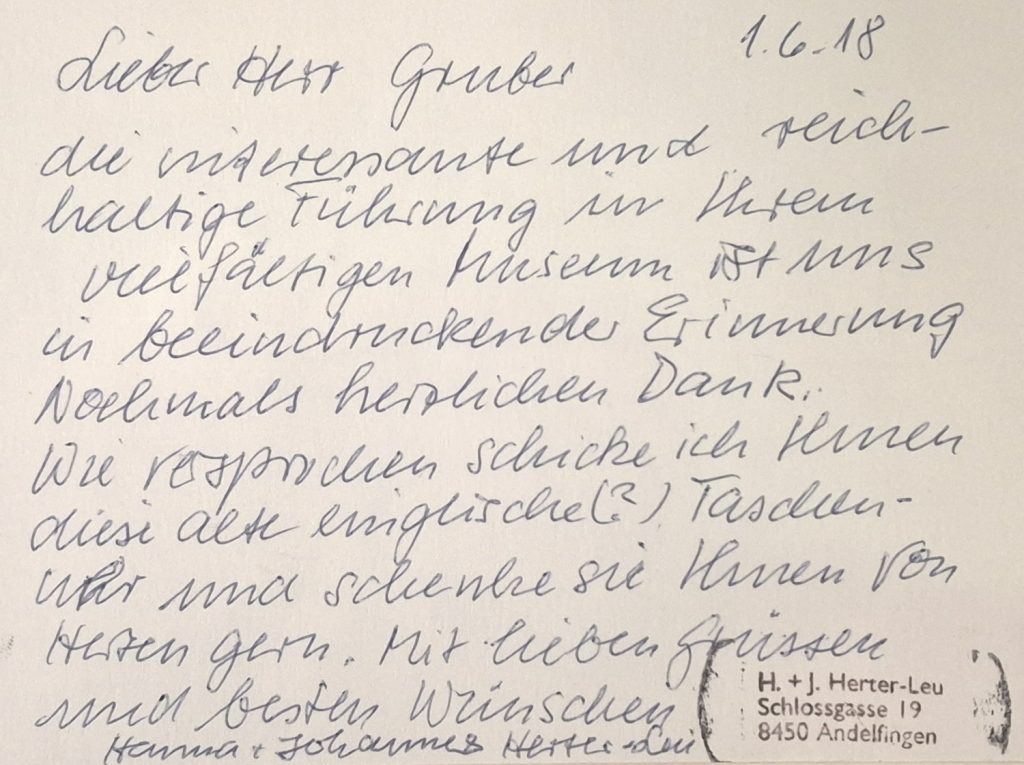 1.6.18
Lieber Herr Gruber
die interessante und reich-
haltige Führung in Ihrem
vielfältigen Museum ist uns
in beeindruckender Erinnerung
Nochmals herzlichen Dank.
Wie versprochen schicke ich Ihnen
diese alte englische(?) Taschen-
uhr und schenke sie Ihnen von
Herzen gern. Mit lieben Grüssen
und besten Wünschen
Hanna + Johannes Herter-Leu
H. + J. Herter-Leu
Schlossgasse 19
8450 Andelfingen